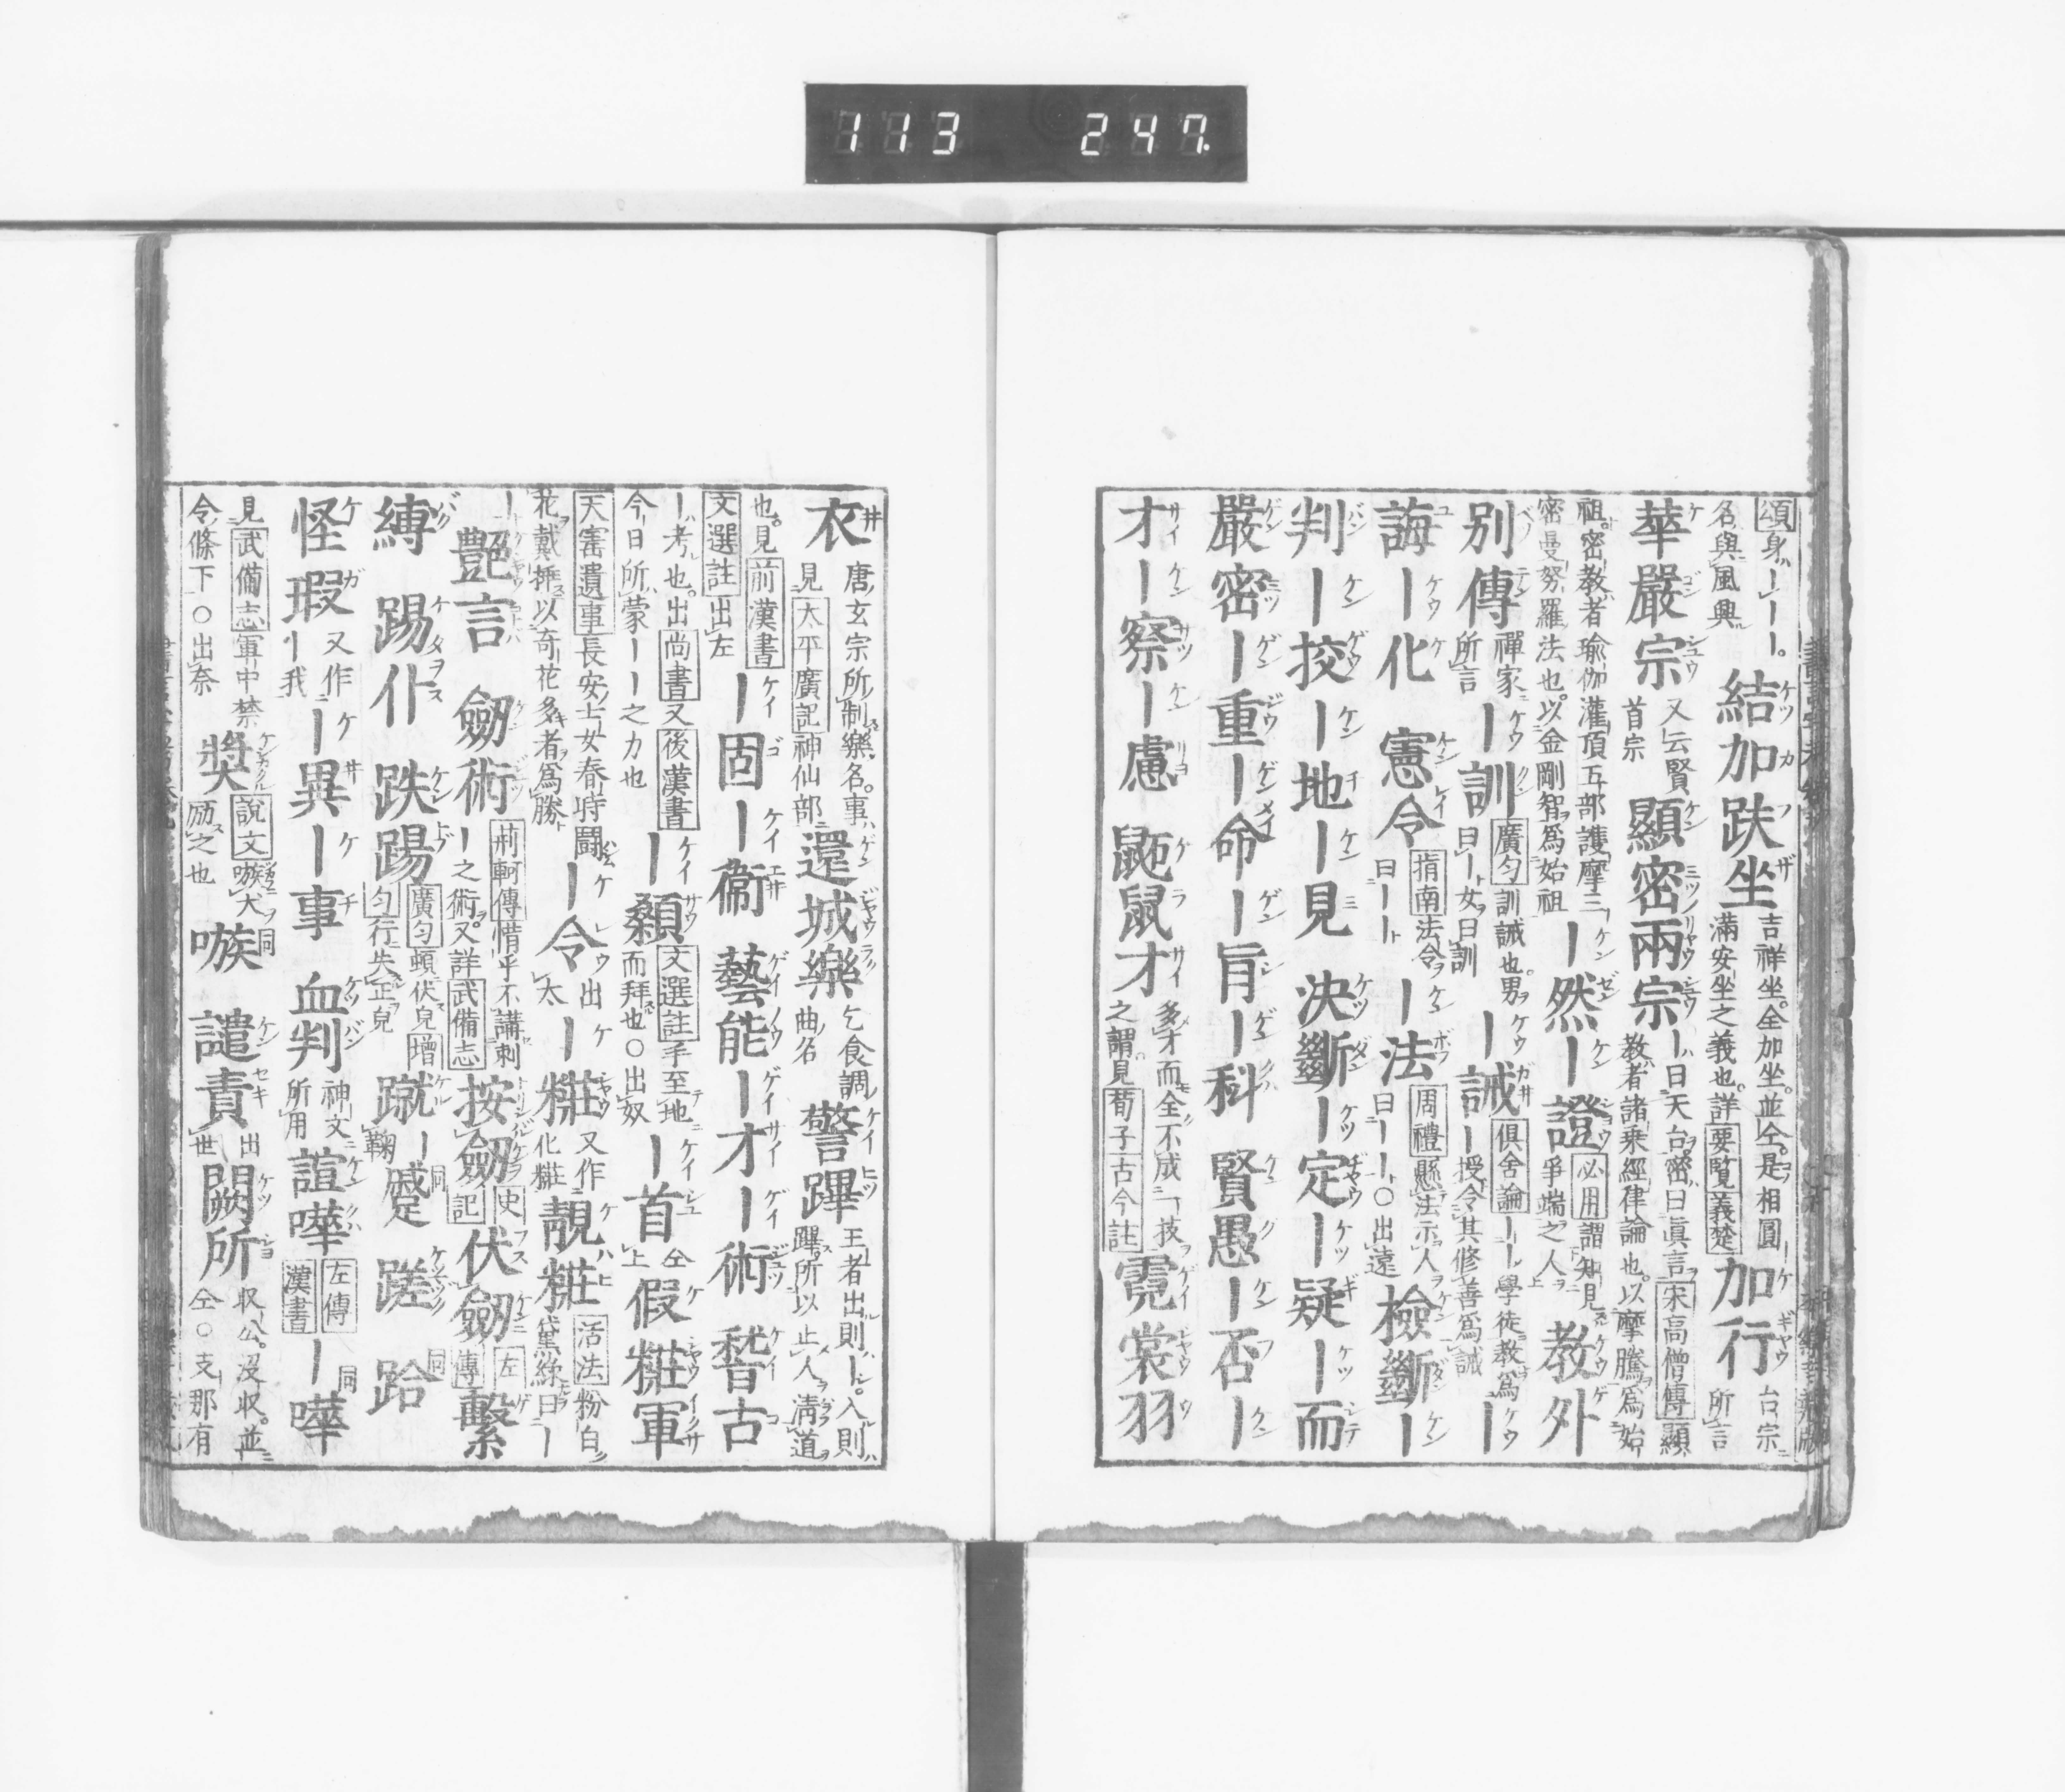 113 247.
頌身ーーー。名與風興 結加趺坐 吉祥坐。全加坐。並仝。是相圓滿安坐之義也。詳要覧義楚 加行 台宗所言
華嚴宗 又云賢首宗 顯密兩宗 ー曰天台。密曰眞言宋高僧傳顯教者諸乗經律論也。以摩騰爲始
祖。密教者瑜伽灌頂五部護摩三密曼努羅法也。以金剛智爲始祖 ー然 ー證 必用謂知見爭端之人 教外
別傳 禪家所言 ー訓 廣匀訓誡也。男曰ー女曰訓 ー誡 倶舍論ーー學徒教爲ー授令其修善爲誡 ー
誨ー化 憲令 指南法令曰ーー ー法 周禮懸法示人曰ーー○出遠 檢斷ー
判ー挍ー地ー見 決斷ー定ー疑ー而
嚴密ー重ー命ー旨ー科 賢愚ー否ー
才ー察ー慮 鼫鼠才 多才而全不成一技之謂見荀子古今註 霓裳羽
衣 唐玄宗所制樂名。事見太平廣記神仙部 還城樂 乞食調曲名 警蹕 王者出則ー。入則蹕所以止人淸道
也。見前漢書文選註出左 ー固ー衞 藝能ー才ー術 稽古
ー考也。出尚書又後漢書今日所蒙ーー之力也 ー顙 文選註手至地而拜也○出奴 ー首 仝上 假粧軍
天寳遺事長安士女春時鬪花戴揷以奇花多者爲勝 ー令 出太 ー粧 又作化粧 靚粧 活法粉白黛綠曰ー
ー 艶言 劔術 荊軻傳惜乎不講刺ー之術。又詳武備志 按劔 史記 伏劔 左傳 繫
縛 踢仆 跌踢 廣匀頓伏皃增匀行失正皃 蹴ー鞠 蹙 蹉 跲
怪 瑕 又作ー我 ー異ー事 血判 神文所用 諠嘩 左傳漢書 ー嘩
見武備志軍中禁令條下○出奈 奬 說文嗾犬厉之也 嗾 譴責 出世 闕所 収公。沒収。並仝○支那有